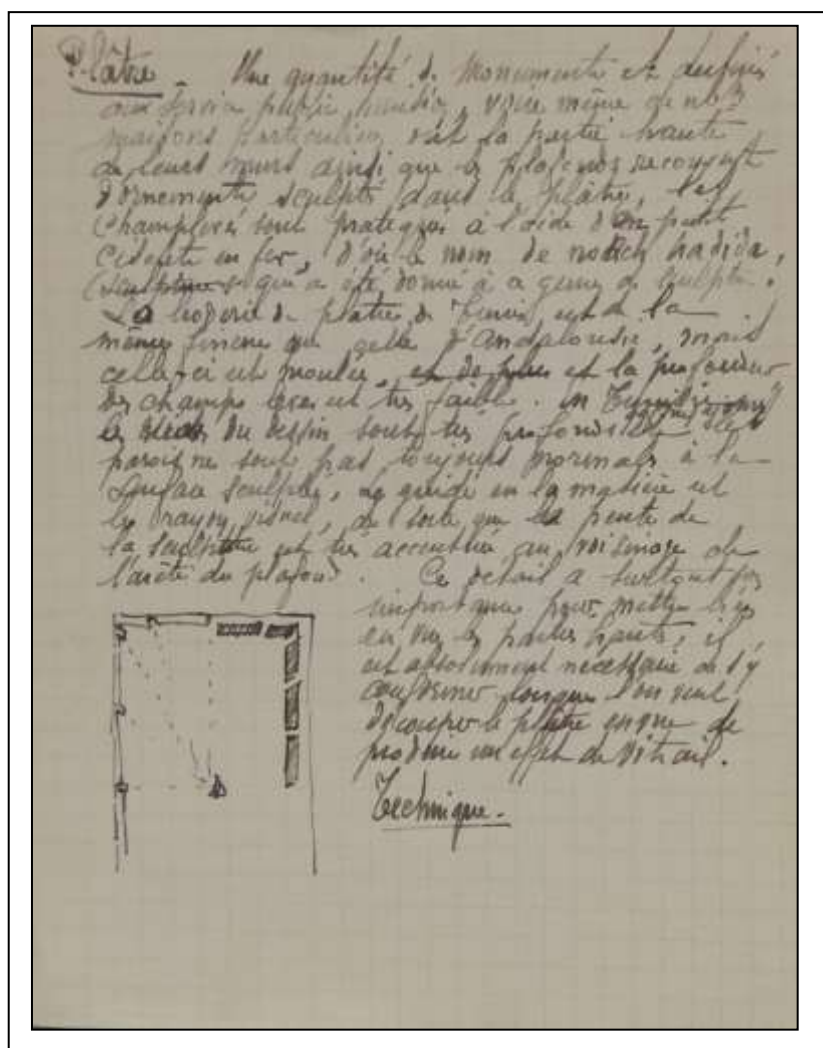 Plâtre. Une quantité de Monuments et
aux service public, voire même de
maisons particulières la partie haute
de leurs murs ainsi que les plafonds recouverts
d'ornements sculptés dans le plâtre, les
champlevés sont pratiqués à l'aide d'un petit
en fer, d'où le nom de hadida,
qui a été donné à ce genre de
La de plâtre de Tunis est de la
même que celle d'Andalousie, mais
celle-ci est moulée, et de plus et la profondeur
des champs levés est très faible. en
les du dessin sont très profonds et les
parois ne sont pas toujours normales à la
surface sculptée, guide en la matière est
le crayon, de sorte que la pente de
la sculpture est très accentuée au voisinage de
l'arête du plafond. Ce détail a surtout
importance pour mettre
en vue les parties hautes, il
est absolument nécessaire de s'y
conformer lorsque l'on veut
découper le plâtre en vue de
produire un effet de vitrail.
Technique.